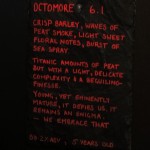 OCTOMORE 6.1
CRISP BARLEY, WAVES OF
PEAT SMOKE, LIGHT SWEET
FLORAL NOTES, BURST OF
SEA SPRAY
TITANIC AMOUNTS OF PEAT
BUT WITH A LIGHT, DELICATE
COMPLEXITY & A BEGUILING
FINESSE.
YOUNG, YET EMINENTLY
MATURE, IT DEFIES US. IT
REMAINS AN ENIGMA.
WE EMBRACE THAT
5 YEARS OLD